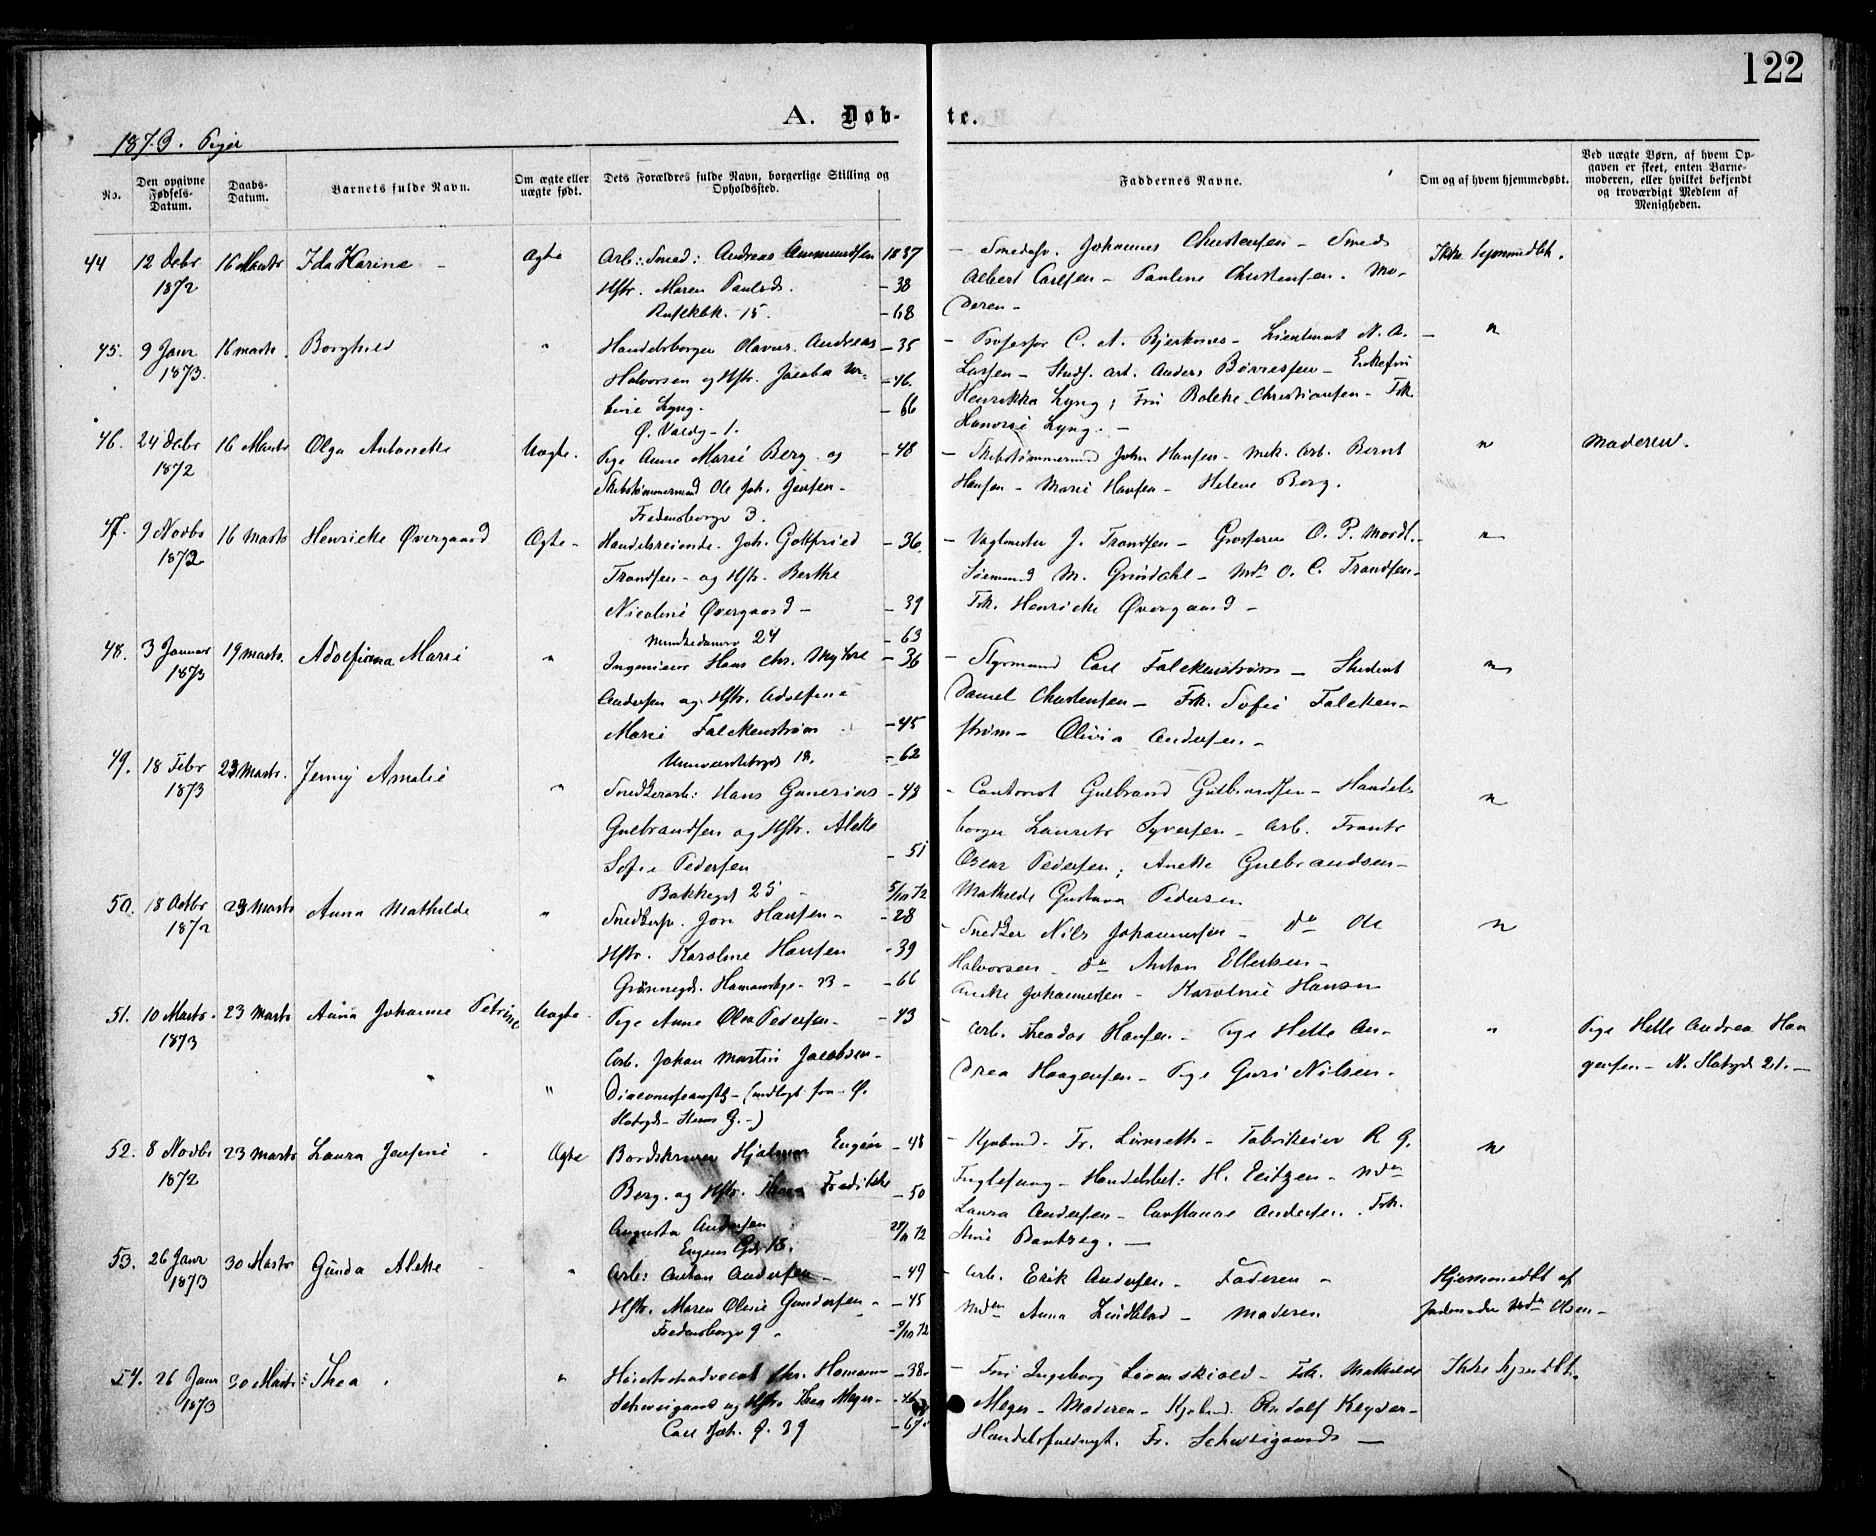 122
A. Døb- te.
1873. Piger
No.
Den opgivne Fødsels-Datum.
Daabs-Datum.
Barnets fulde Navn.
Om ægte eller uægte født.
Dets Forældres fulde Navn, borgerlige Stilling og Opholdssted.
Faddernes Navne.
Om og af hvem hjemmedøbt.
Ved uægte Børn, af hvem Opgaven er skeet, enten Barnemoderen, eller hvilket bekjendt og troværdigt Medlem af Menigheden.
44 12 Debr 16 Marts Ida Karine Ægte Arb: Smed: Andreas Ammundsen 1837 - Smedesv. Johannes Christensen - Smed
1872 Hstr. Maren Paulsd. - 38 Albert Carlsen - Pauline Christensen. Mo-
15. - 68 deren -
45. 9 Janr 16 marts. Borghild " Handelsborger Olavus Andreas - 35 - Professor C. A. Bjerknes - Lieutnant N. A. - "
1873. Halvorsen og Hstr. Jacoba - 46. Larsen - Stud. art. Anders Børresen - Enkefru
Lyng. - 66 Henrikka Lyng; Fru Bolette Christiansen - Frk.
Ø. Voldg - 1. Lyng. -
46. 24 Debr 16 Marts Olga Antonette Uægte. Pige Anne Marie Berg og - 48 - Skibstømmermd John Hansen - mek. Arb. Bernt " Moderen.
1872 Skibstømmermand Ole Joh. Jensen - Hansen - Marie Hansen - Helene Berg.
Fredensborgv 3.
47. 9 Novbr 16 Marts Henrikke Øvergaard Ægte - Handelsreisende Joh. Gottfried - 36. - Vagtmester J. Trondsen - Grosserer O. P. Moestl. - "
1872 Trondsen - og Hstr. Berthe Sømand M. Grøndahl - Md. O. C. Trondsen -
Nicoline Øvergaard - - 39 Frk. Henrikke Øvergaard -
Munkedamsv 24 - 63
48. 3 Januar 19 marts. Adolfina Marie " Ingenieur Hans Chr. - 36 - Styrmand Carl Falckenstrøm - Student "
1873 Andersen og Hstr. Adolfine Daniel Christensen - Frk. Sofie Falcken-
Marie Falckenstrøm - 45 strøm - Olivia Andersen -
Universitetsgd 18. - 62
49. 18 Febr 23 Marts. Jenny Amalie " Snedkerarb: Hans Gunerius - 48 - Cantorist Gulbrand Gulbrandsen - Handels "
1873 Gulbrandsen og Hstr. Alette borger Laurits Syversen - Arb. Frants
Sofie Pedersen - 51 Oscar Pedersen; Anette Gulbrandsen -
Bakkegd 25 - 5/10 72 Mathilde Gustava Pedersen
50. 18 Octbr 23 Marts Anna Mathilde " Snedkersv. Jon Hansen - - 28 - Snedker Nils Johannessen - do Ole "
1872 Hstr. Karoline Hansen - 39 Halvorsen - do Anton Ellertsen -
Grønnegd. 23 - - 66 Johannessen - Karoline Hansen
51. 10 Marts. 23 Marts Anna Johanne Petrine Uægte. Pige Anne Olea Pedersen - - 43 - Arb. Theodor Hansen - Pige Helle An- " Pige Helle Andrea Haa
1873 Arb. Johan Martin Jacobsen - drea Haagensen - Pige Guri Nilsen - gensen - N. Slotsgd 21. -
" Diaconisseanstlt - (indlagt fra Ø.
Slotsgd -)
52. 8 Novbr 23 Marts Laura Josefine Ægte Bordskriver Hjalmar Eugen - 48 - Kjøbmd. Fr. - Fabrikeier R G. "
1872 Berg. og Hstr. Thea Fredrikke - 50 Fuglesang - Handelsbet: H. Eitzen - Mdn
Augusta Andersen 27/11 72 Laura Andersen - Constance Andersen. Frk.
Eugens Gd 13. Stine -
53. 26 Janr 30 Marts Gunda Alette " Arb: Anton Andersen - - 49 - Arb. Erik Andersen - Faderen - Hjemmedbt af
1873 Hstr. Maren Oline Gundersen - - 45 Mdn Anna Lindblad - Moderen Jordemoder Mdn Olsen -
Fredensborgv 9 - - 9/10 72
54. 26 Janr 30 Marts: Thea " Høiesteretsadvocat Chr. Homann - 38. - Fru Ingeborg Løvenskiold - Frk. Mathilde Ikke hjemdbt.
1873 Schweigaard og Hstr. Thea Meyer - - 46 Meyer - Moderen - Kjøbmd. Rudolf Keyser -
Carl Joh. G. 39 - 67 Handelsfuldmgt. Fr. Schweigaard -